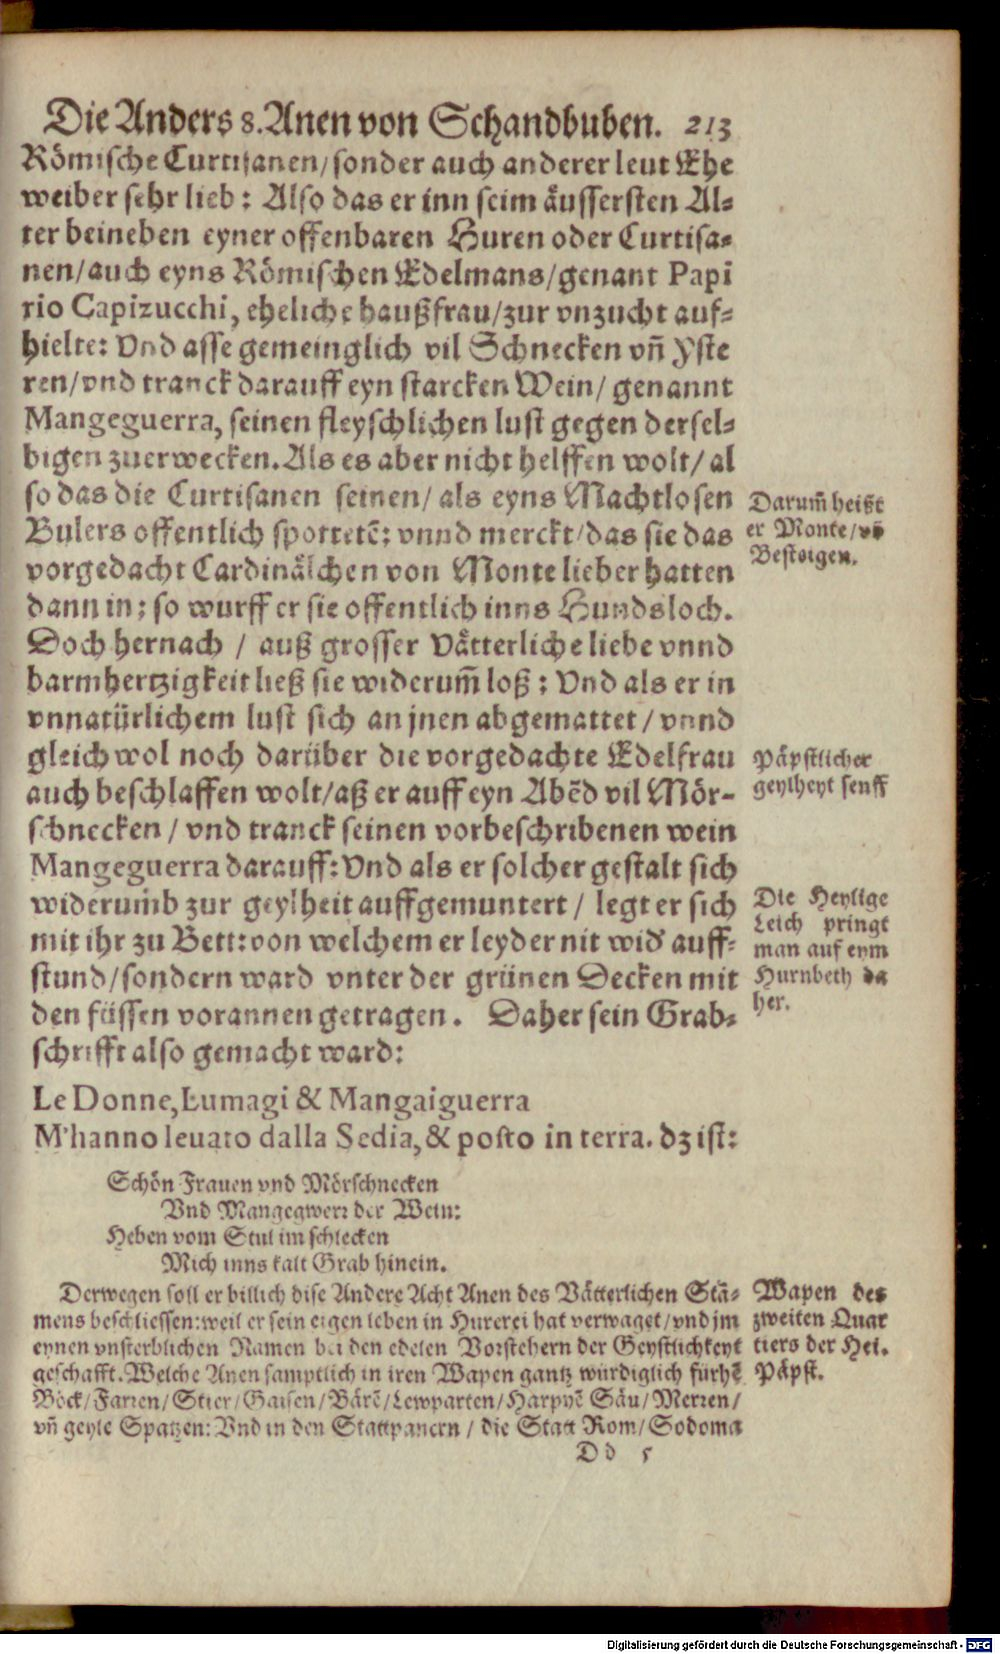 Die Anders 8. Anen von Schandbuben. 213
Römische Curtisanen/sonder auch anderer leut Ehe
weiber sehr lieb: Also das er inn seim äussersten Al-
ter beineben eyner offenbaren Huren oder Curtisa-
nen/auch eyns Römischen Edelmans/genant Papi
rio Capizucchi, eheliche haußfrau/zur vnzucht auf-
hielte: Vnd asse gemeinglich vil Schnecken vñ Yste
ren/vnd tranck darauff eyn starcken Wein/genannt
Mangeguerra, seinen fleyschlichen lust gegen dersel-
bigen zuerwecken. Als es aber nicht helffen wolt/al
so das die Curtisanen seinen/als eyns Machtlosen
Bulers offentlich spottetẽ: vnnd merckt/das sie das
vorgedacht Cardinälchen von Monte lieber hatten
dann in: so wurff er sie offentlich inns Hundsloch.
Doch hernach / auß grosser Vätterliche liebe vnnd
barmhertzigkeit ließ sie widerum̃ loß: Vnd als er in
vnnatürlichem lust sich an jnen abgemattet/vnnd
gleich wol noch darüber die vorgedachte Edelfrau
auch beschlaffen wolt/aß er auff eyn Abẽd vil Mör-
schnecken / vnd tranck seinen vorbeschribenen wein
Mangeguerra darauff: Vnd als er solcher gestalt sich
widerumb zur geylheit auffgemuntert / legt er sich
mit ihr zu Bett: von welchem er leyder nit wid' auff-
stund/sondern ward vnter der grünen Decken mit
den füssen vorannen getragen. Daher sein Grab-
schrifft also gemacht ward:
Le Donne, Lumagi & Mangaiguerra
M'hanno leuato dalla Sedia, & posto in terra. dz ist:
Schön Frauen vnd Mörschnecken
Vnd Mangegwerr der Wein:
Heben vom Stul im schlecken
Mich inns kalt Grab hinein.
Derwegen soll er billich dise Andere Acht Anen des Vätterlichen Stã-
mens beschliessen: weil er sein eigen leben in Hurerei hat verwaget/vnd jm
eynen vnsterblichen Namen bei den edelen Vorstehern der Geystlichkeyt
geschafft. Welche Anen samptlich in iren Wapen gantz würdiglich fürhẽ
Böck/Farren/Stier/Gaisen/Bärẽ/Lewparten/Harpyẽ Säu/Merren/
vñ geyle Spatzen: Vnd in den Stattpanern / die Statt Rom/Sodoma
D d 5
Darum̃ heißt
er Monte/võ
Besteigen.
Päpstlicher
geylheyt senff
Die Heylige
Leich pringt
man auf eym
Hurnbeth da
her.
Wapen des
zweiten Quar
tiers der Hei.
Päpst.
Digitalisierung gefördert durch die Deutsche Forschungsgemeinschaft - DFG